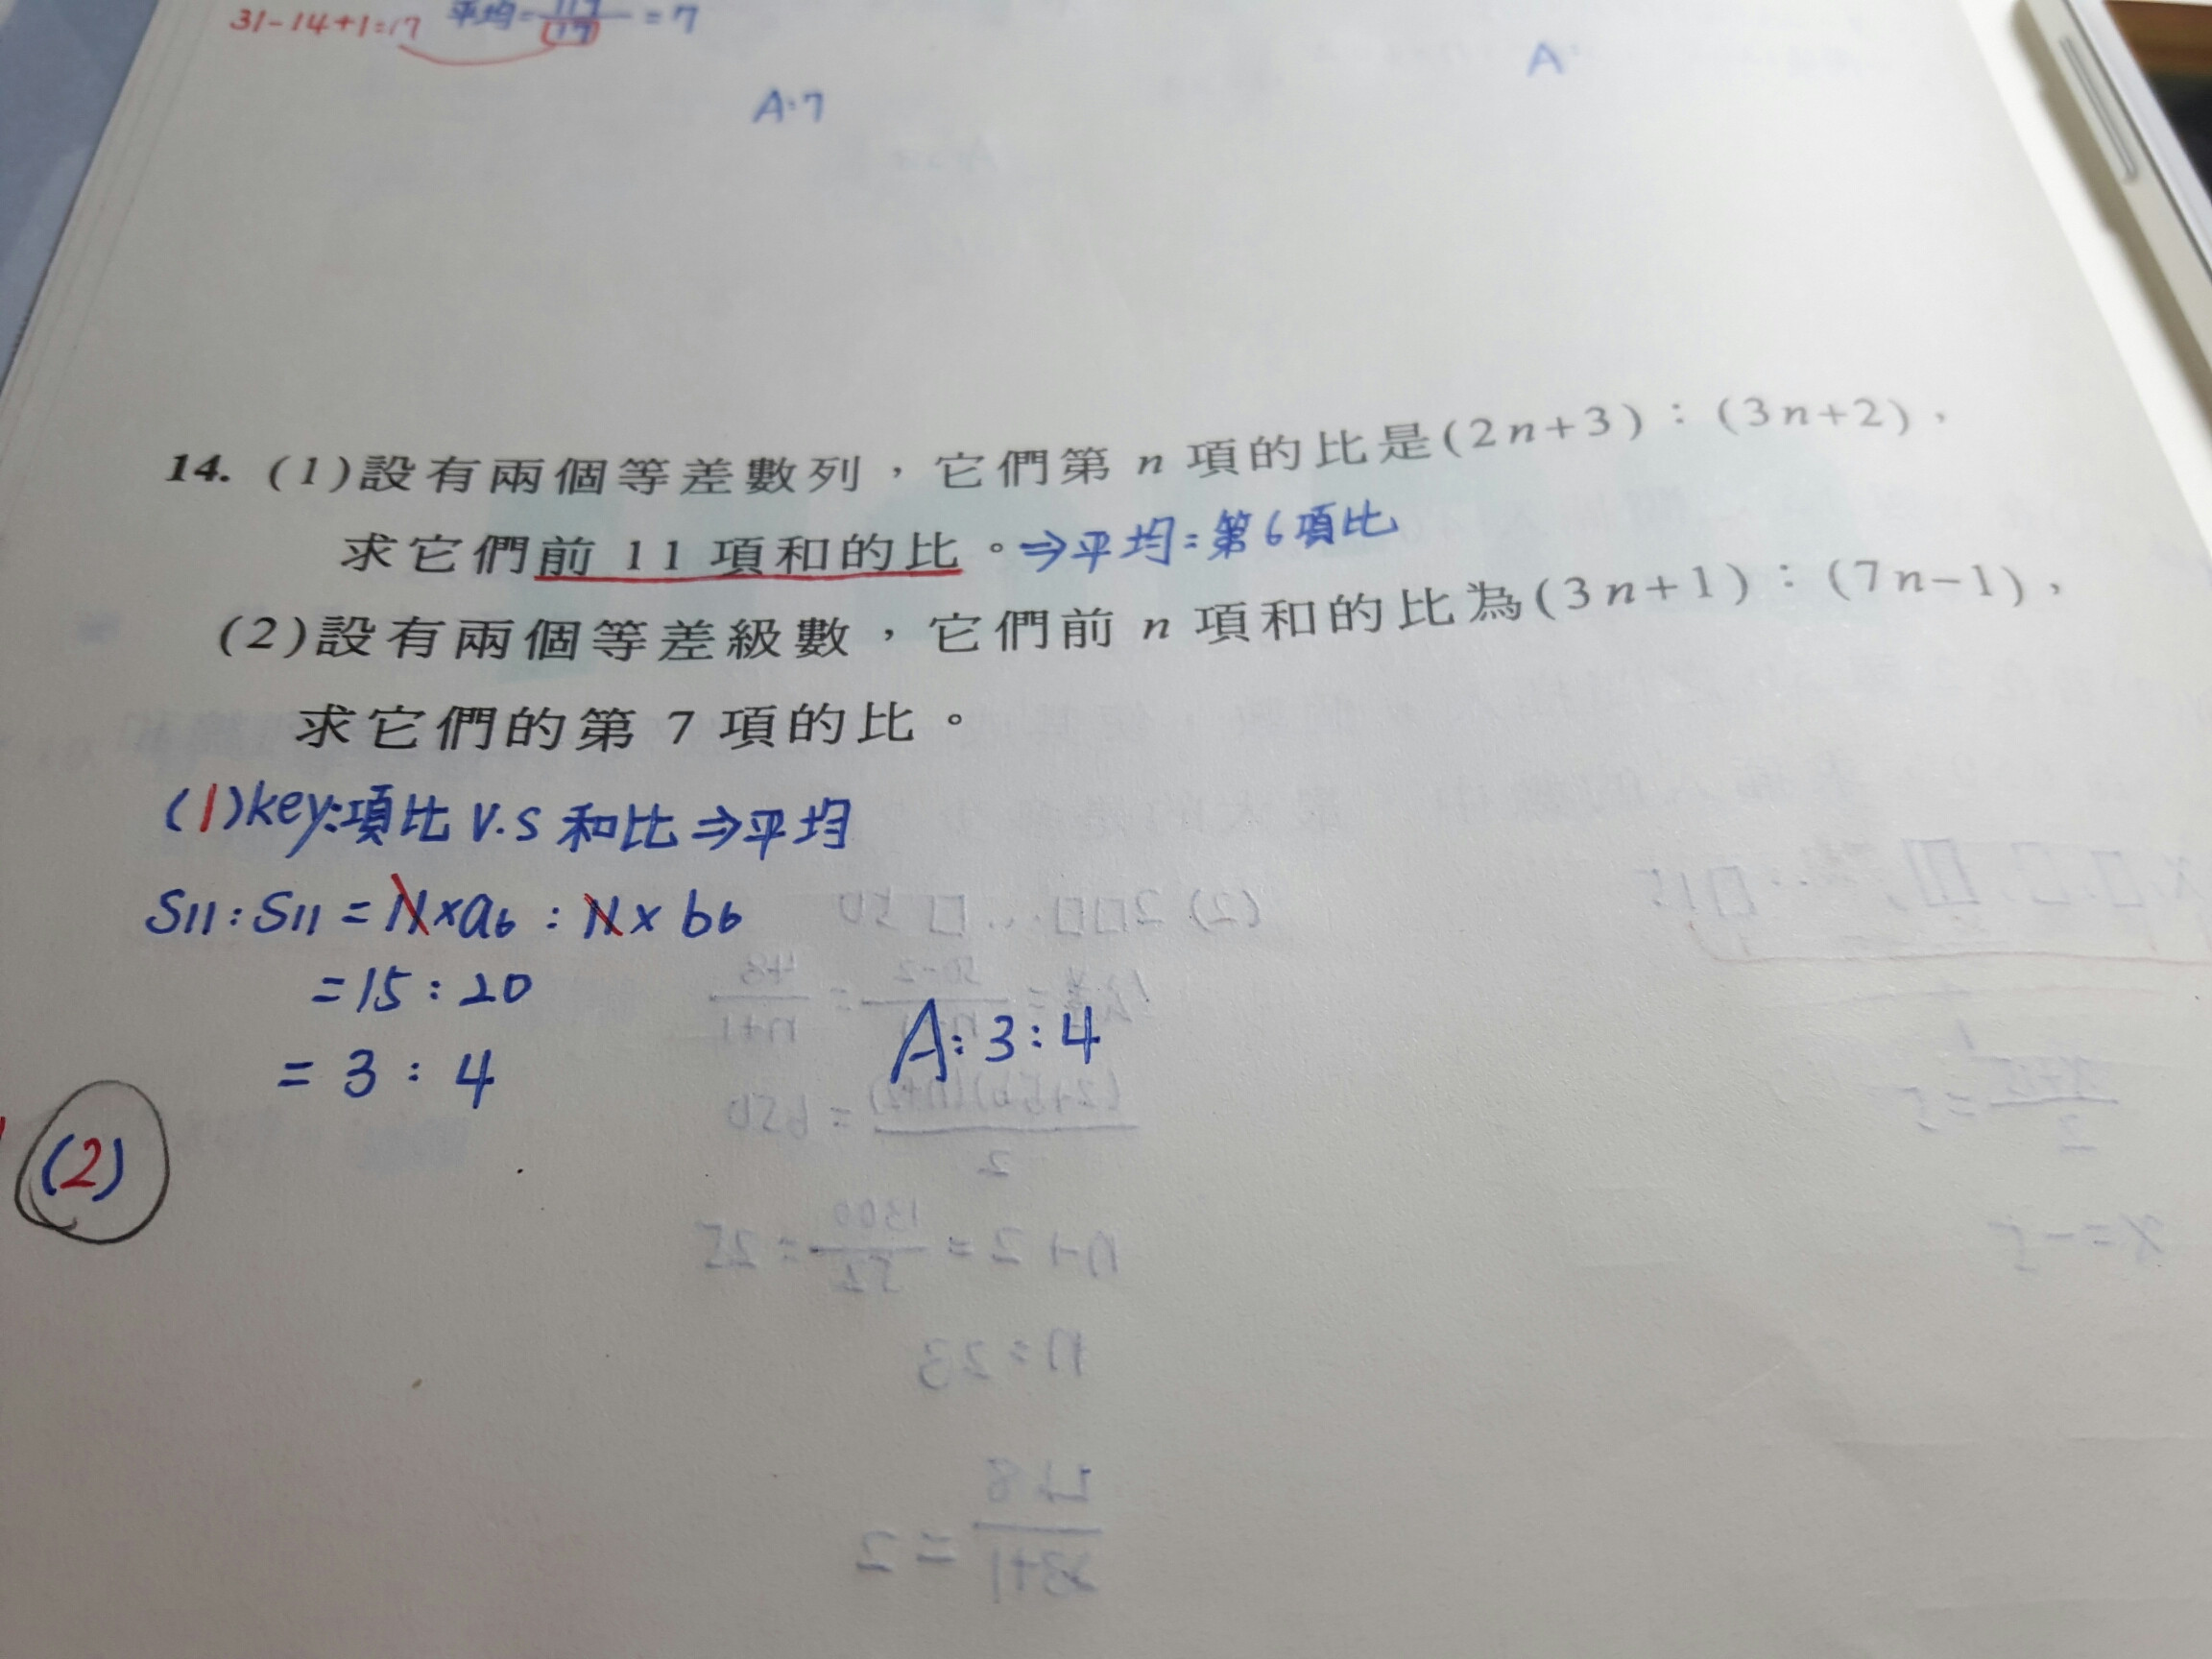 31-14+1=17 平均=117/17=7
A:7
A:
14. (1)設有兩個等差數列，它們第 n 項的比是(2n+3)：(3n+2)，
求它們前 11 項和的比。⇒平均=第6項比
(2)設有兩個等差級數，它們前 n 項和的比為(3n+1)：(7n-1)，
求它們的第 7 項的比。
(1)key:項比 V.S 和比⇒平均
S11:S11=11×a6:11×b6
=15:20
=3:4
A:3:4
(2)